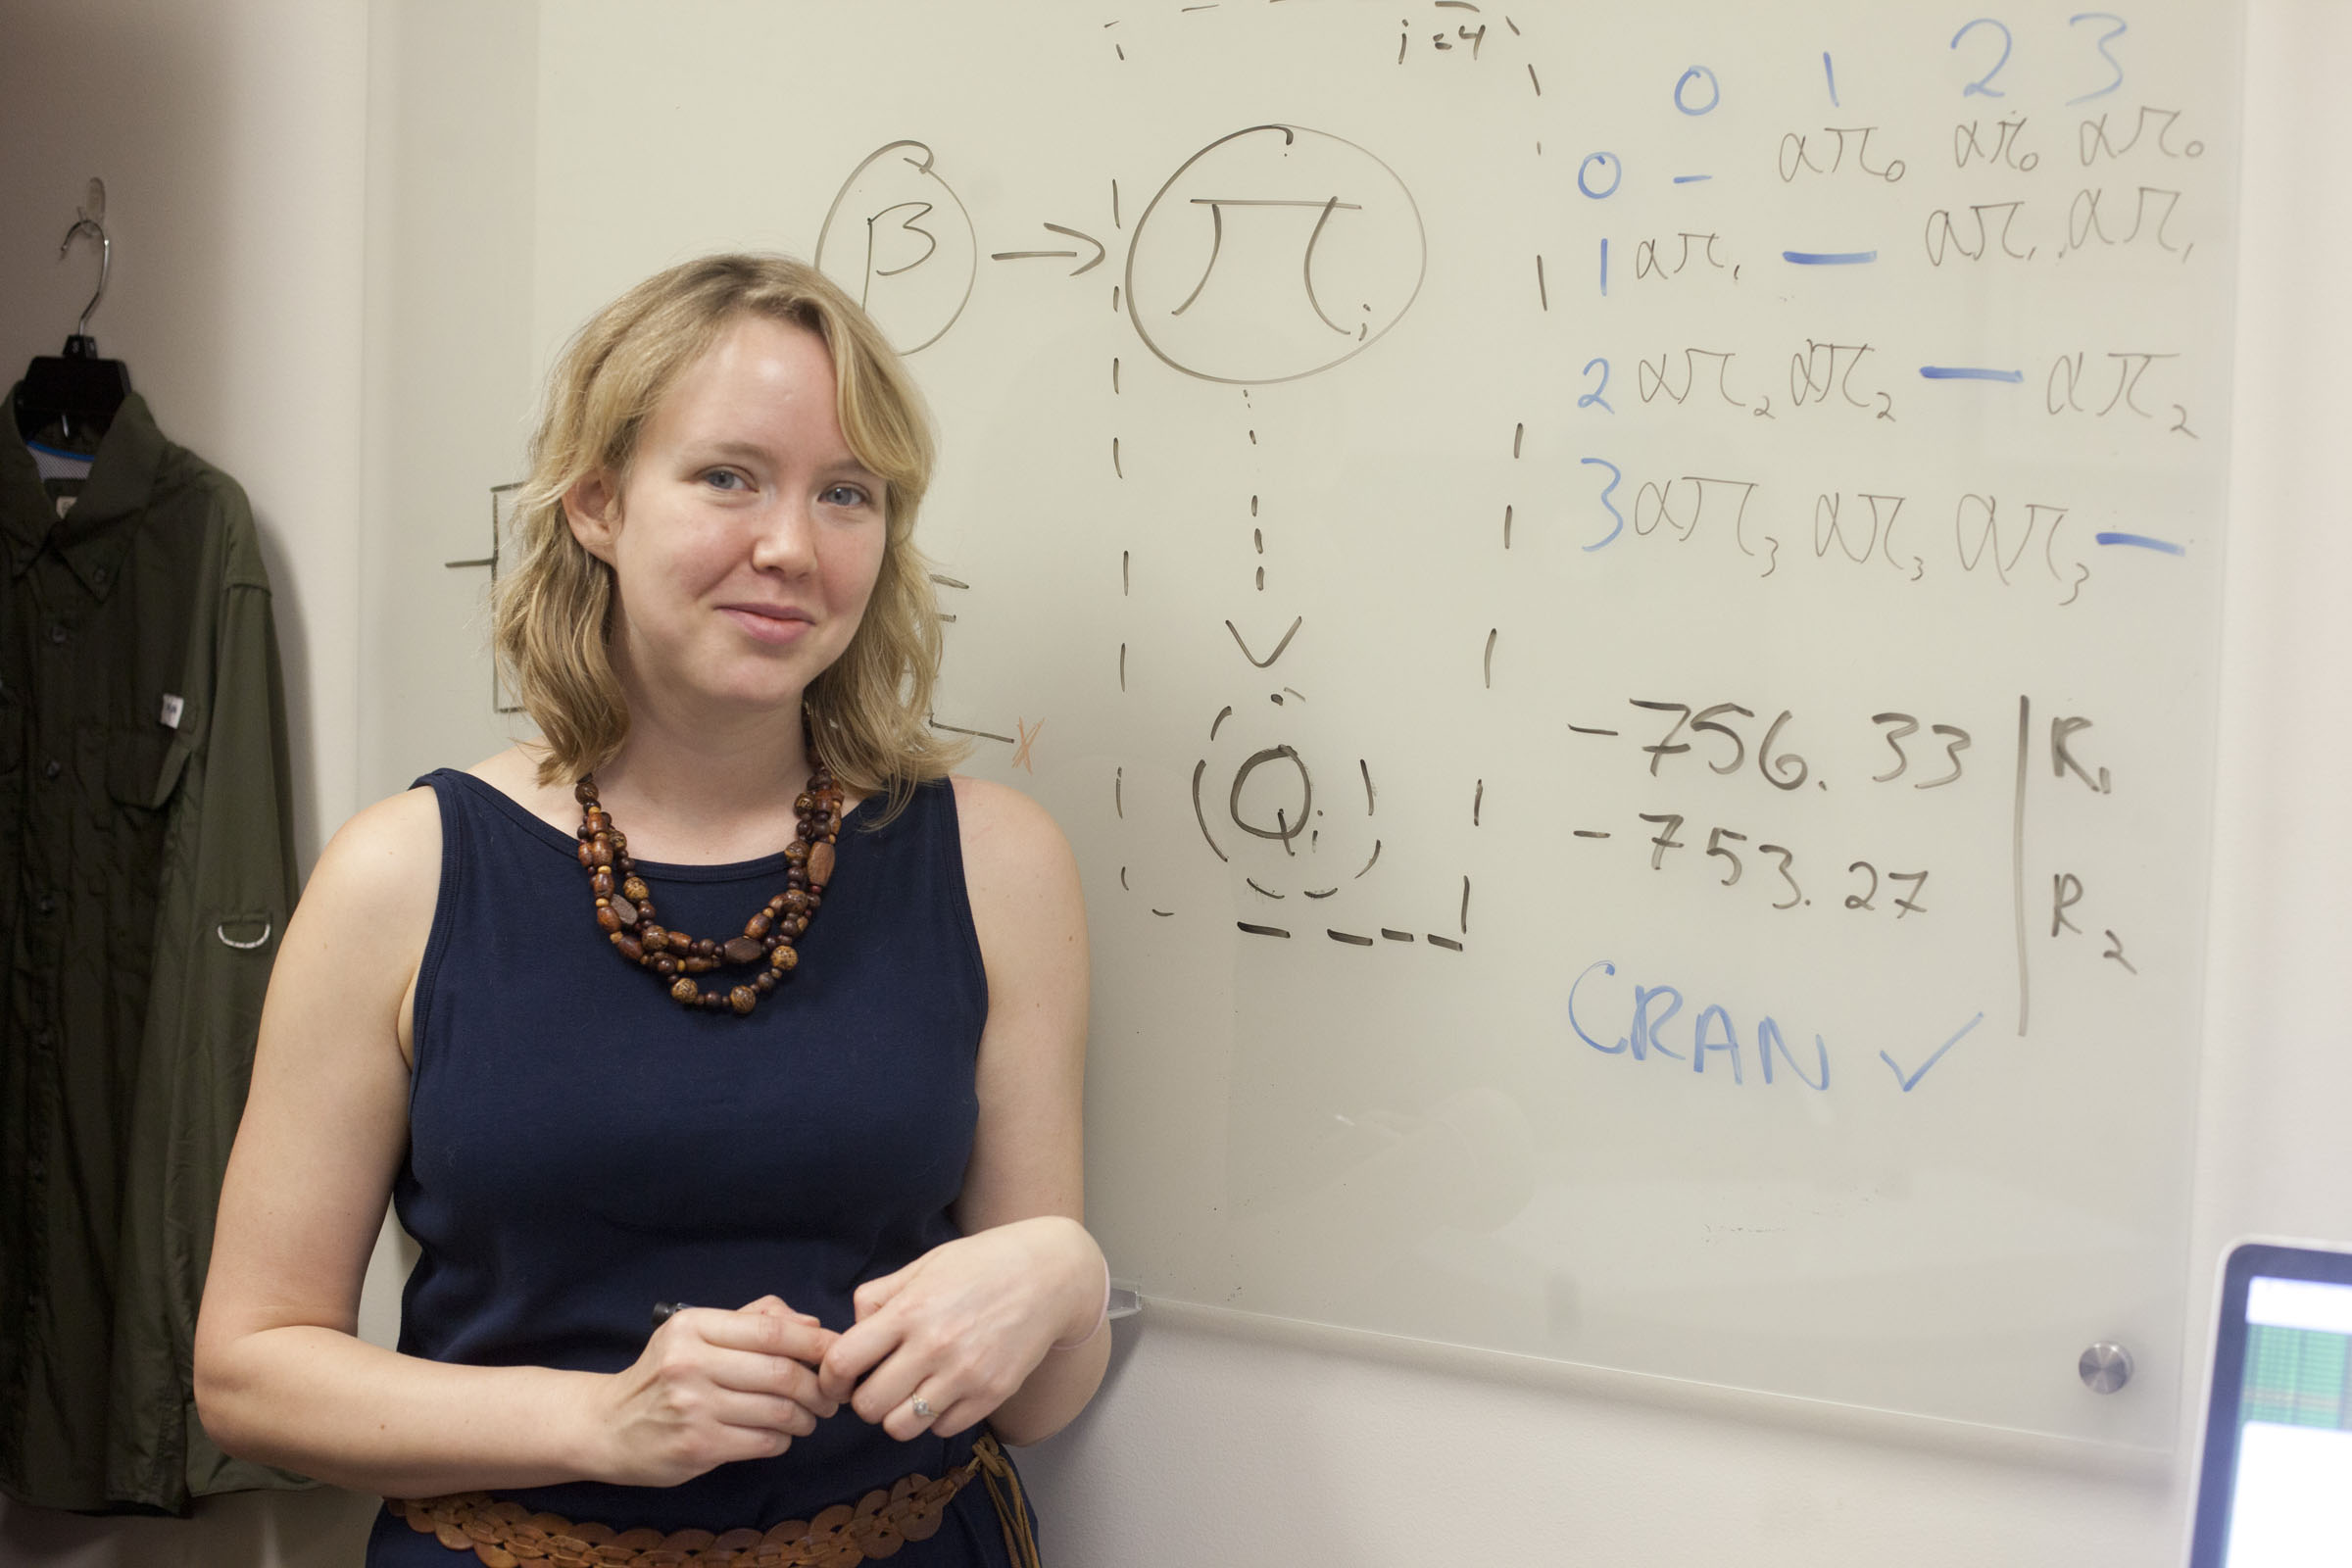 i=4
β → π i
Q i
0 1 2 3
0 - απ₀ απ₀ απ₀
1 απ₁ — απ₁ απ₁
2 απ₂ απ₂ — απ₂
3 απ₃ απ₃ απ₃ —
-756.33 | R₁
-753.27 | R₂
CRAN ✓
X